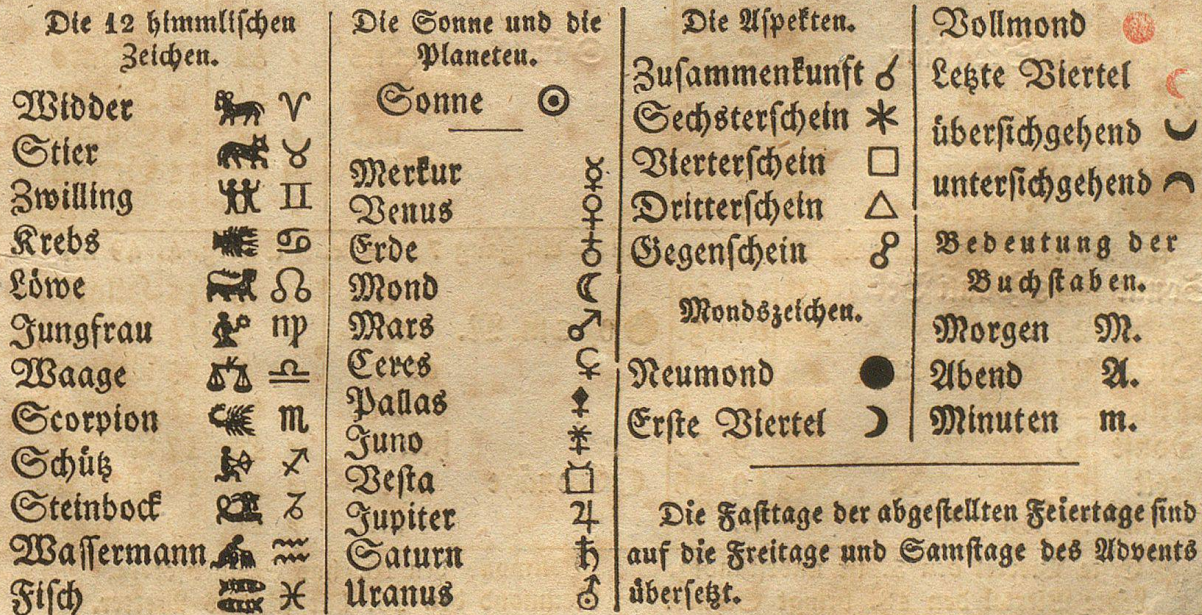 Die 12 himmlischen
Zeichen.
Widder ♈
Stier ♉
Zwilling ♊
Krebs ♋
Löwe ♌
Jungfrau ♍
Waage ♎
Scorpion ♏
Schütz ♐
Steinbock ♑
Wassermann ♒
Fisch ♓
Die Sonne und die
Planeten.
Sonne ☉
Merkur ☿
Venus ♀
Erde ♁
Mond ☾
Mars ♂
Ceres ⚳
Pallas ⚴
Juno ⚵
Vesta ⚶
Jupiter ♃
Saturn ♄
Uranus ⛢
Die Aspekten.
Zusammenkunft ☌
Sechsterschein ⚹
Vierterschein □
Dritterschein △
Gegenschein ☍
Mondszeichen.
Neumond ●
Erste Viertel ☽
Vollmond
Letzte Viertel ☾
übersichgehend
untersichgehend
Bedeutung der
Buchstaben.
Morgen M.
Abend A.
Minuten m.
Die Fasttage der abgestellten Feiertage sind
auf die Freitage und Samstage des Advents
übersetzt.